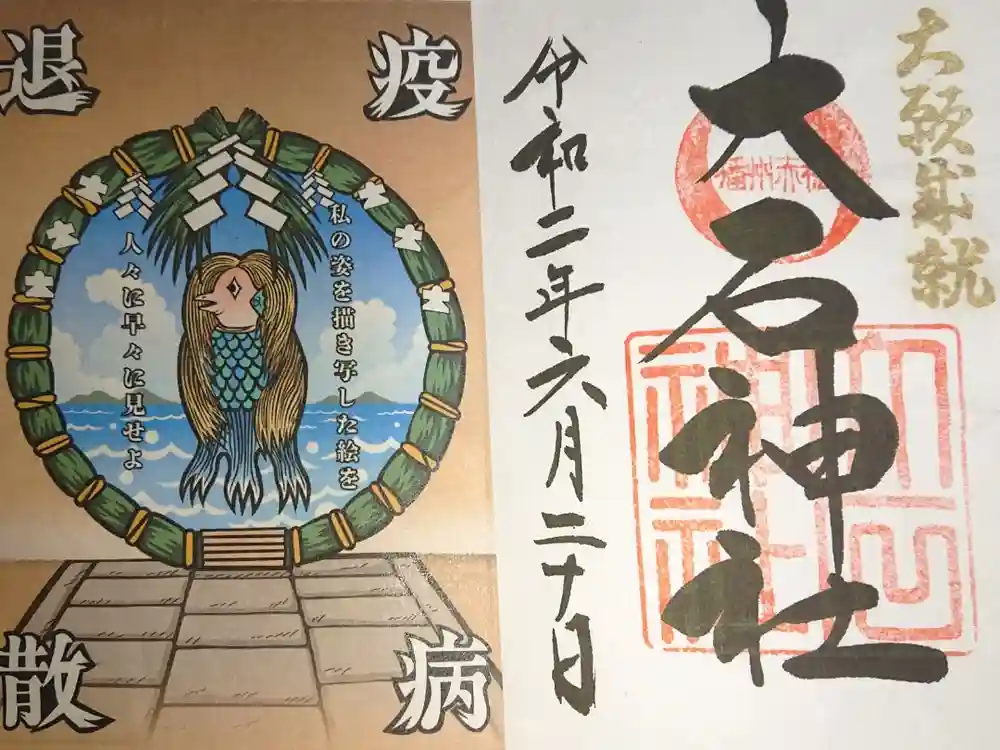 大願成就
大石神社
播州赤穂
大石
神社
令和二年六月二十日
疫病
退散
私の姿を描き写した絵を
人々に早々に見せよ